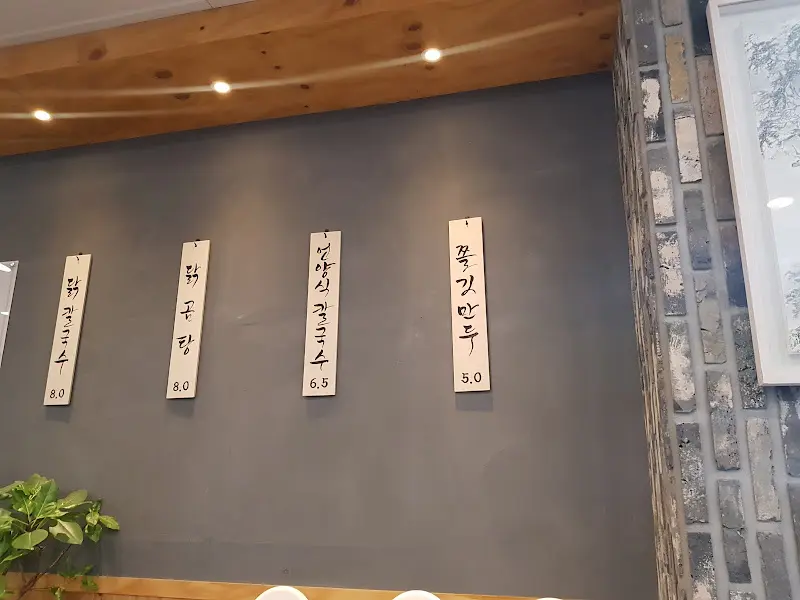 닭칼국수
8.0
닭곰탕
8.0
언양식칼국수
6.5
쫄깃만두
5.0